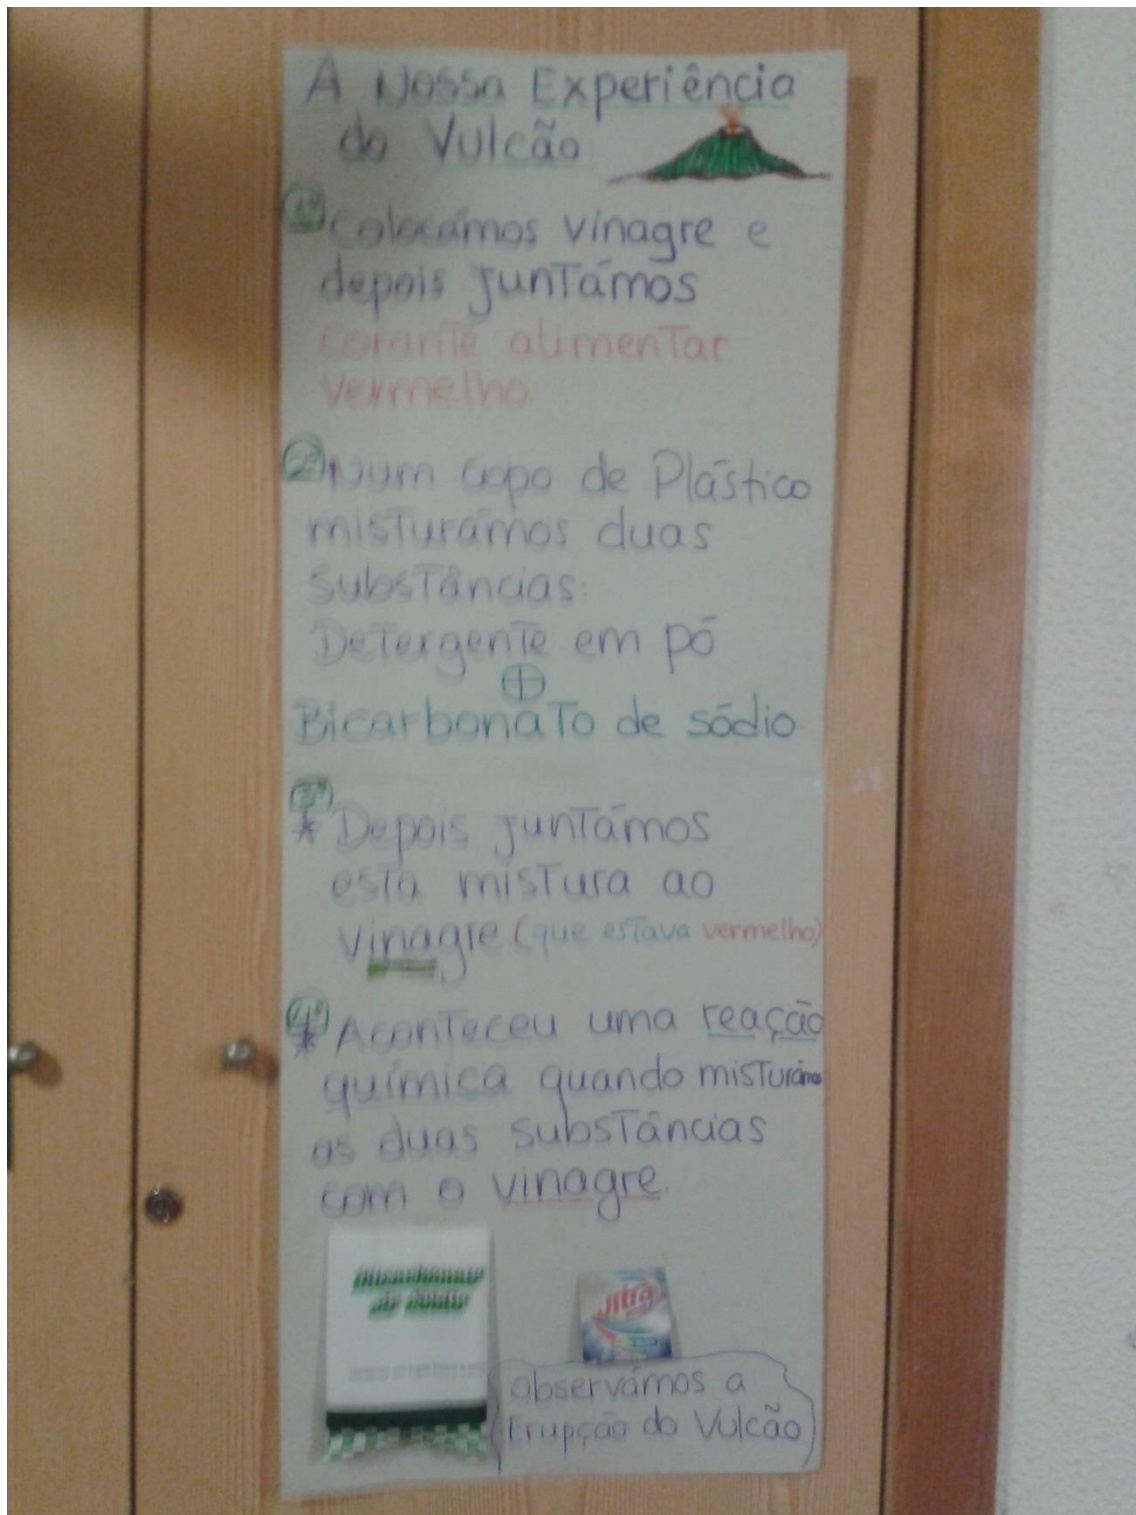 A Nossa Experiência
do Vulcão
1º Colocámos vinagre e
depois juntámos
corante alimentar
vermelho
2º Num copo de Plástico
misturámos duas
substâncias:
Detergente em pó
+
Bicarbonato de sódio
3º
* Depois juntámos
esta mistura ao
vinagre (que estava vermelho)
4º
* Aconteceu uma reação
química quando misturámos
as duas substâncias
com o vinagre.
Bicarbonato
de Sódio
observámos a
Erupção do Vulcão